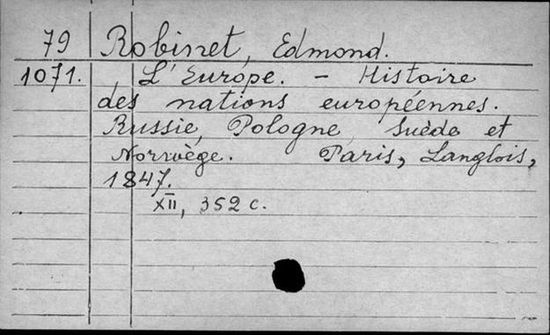 79 Robinet, Edmond.
1071. L'Europe. – Histoire
des nations européennes.
Russie, Pologne, Suède et
Norrvège. Paris, Langlois,
1847.
XII, 352 c.